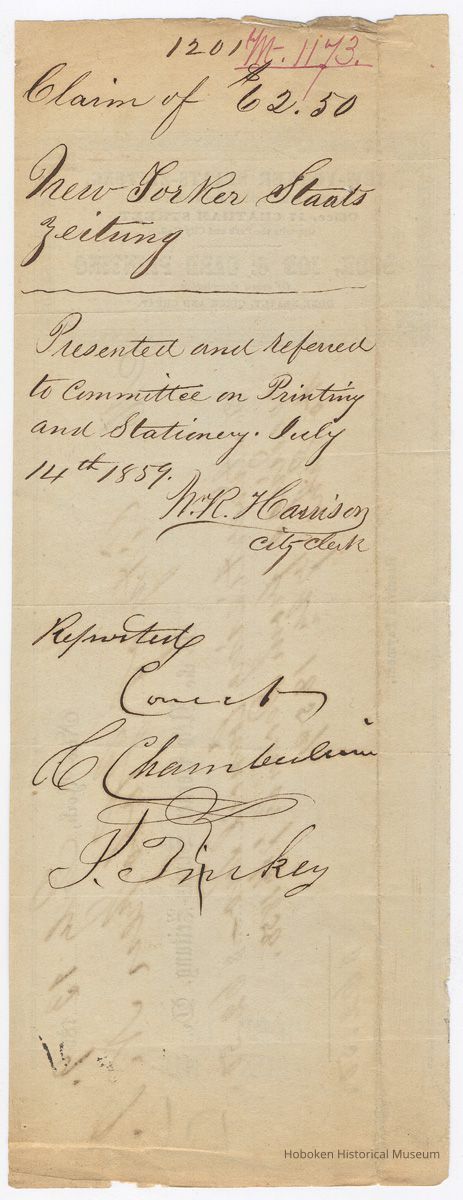 1201
1173.
Claim of $62.50
New Yorker Staats
Zeitung
Presented and referred
to Committee on Printing
and Stationery. July
14th 1859.
W. R. Harrison
City Clerk
Reported
Correct
C Chamberlain
J. Tinkey
Hoboken Historical Museum